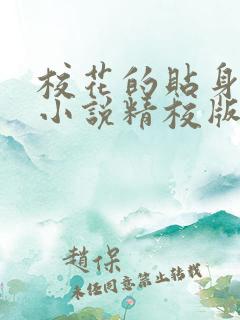 校花的貼身
小說精校版
趙保
未任同意禁止转载